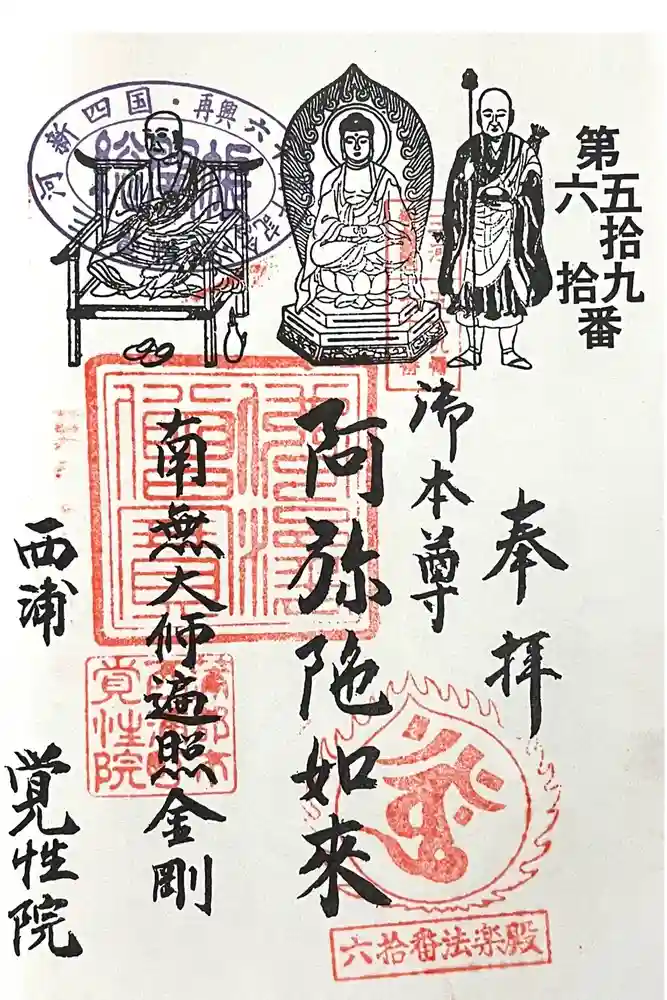 第五拾九
六拾番
奉拝
御本尊
阿弥陀如来
南無大師遍照金剛
西浦 覚性院
覚性院
六拾番法楽殿
三河新四国・再興六十